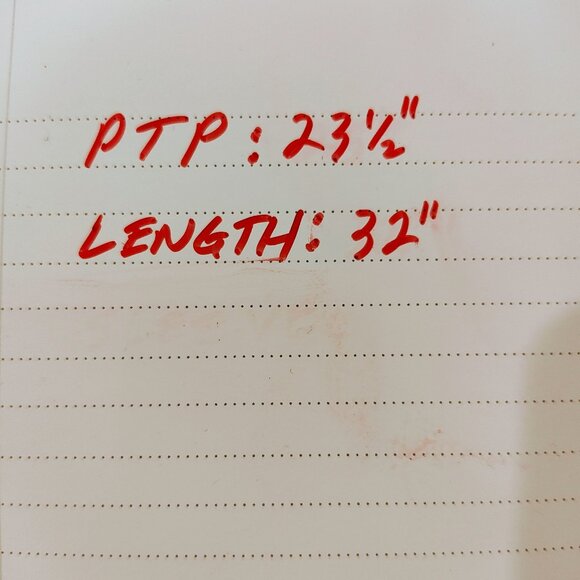 PTP: 23½"
LENGTH: 32"